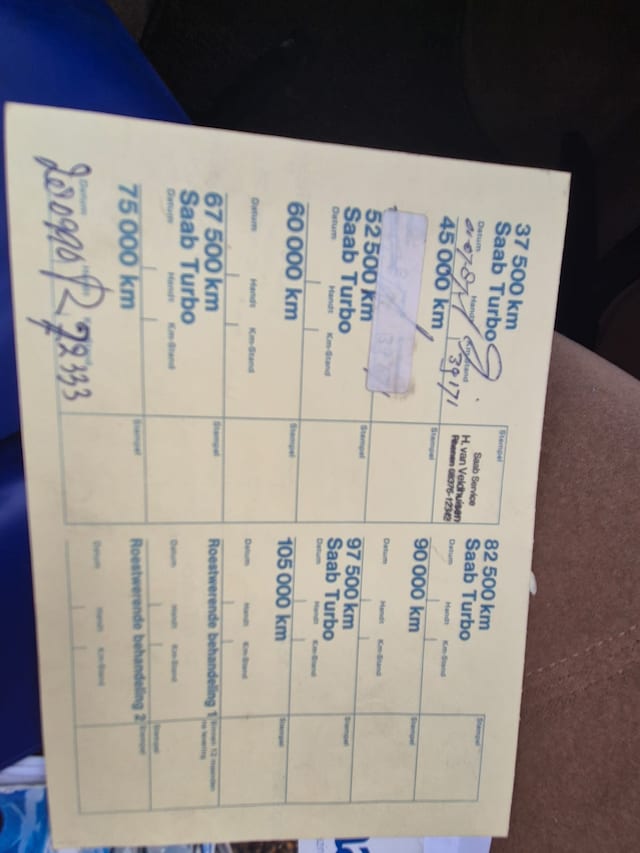 37 500 km
Saab Turbo
Datum Handt Km-Stand Stempel
39171
Saab Service
H. van Veldhuisen
45 000 km
Stempel
52 500 km
Saab Turbo
Datum Handt Km-Stand Stempel
60 000 km
Datum Handt Km-Stand Stempel
67 500 km
Saab Turbo
Datum Handt Km-Stand Stempel
75 000 km
Datum Stempel
72333
82 500 km
Saab Turbo
Datum Handt Km-Stand Stempel
90 000 km
Datum Handt Km-Stand Stempel
97 500 km
Saab Turbo
Datum Handt Km-Stand Stempel
105 000 km
Datum Handt Km-Stand Stempel
Roestwerende behandeling 1 binnen 12 maanden
na levering
Datum Handt Km-Stand Stempel
Roestwerende behandeling 2
Datum Handt Km-Stand Stempel